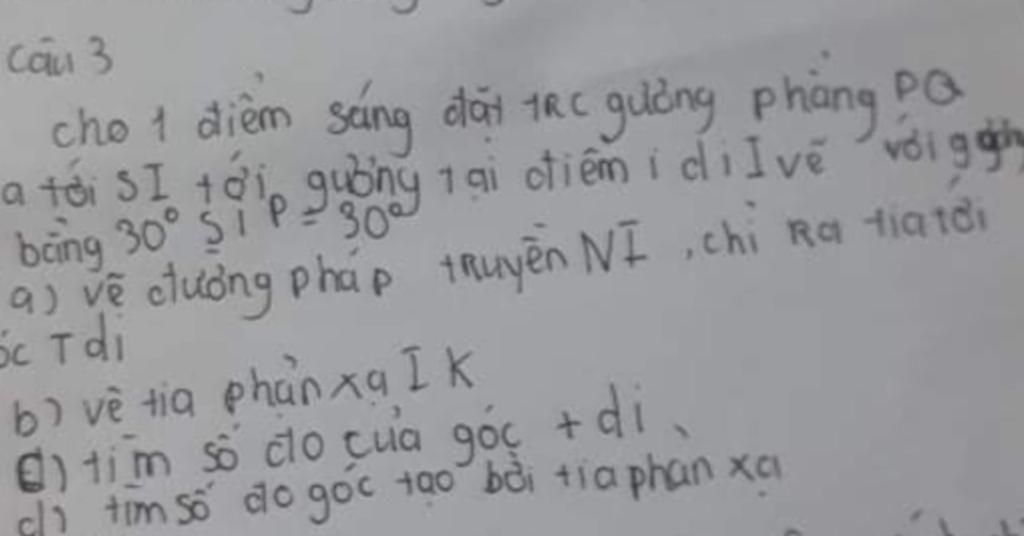 Câu 3
cho 1 điểm sáng đặt TRC gường phảng PQ
a tới SI tới gường tại điểm i di I vẽ với g
bằng 30° SIP = 30°
a) vẽ đường pháp tRuyền NI, chỉ Ra tia tới
óc T di
b) vẽ tia phản xạ IK
tìm số đo của góc t di
d) tìm số đo góc tạo bởi tia phan xạ